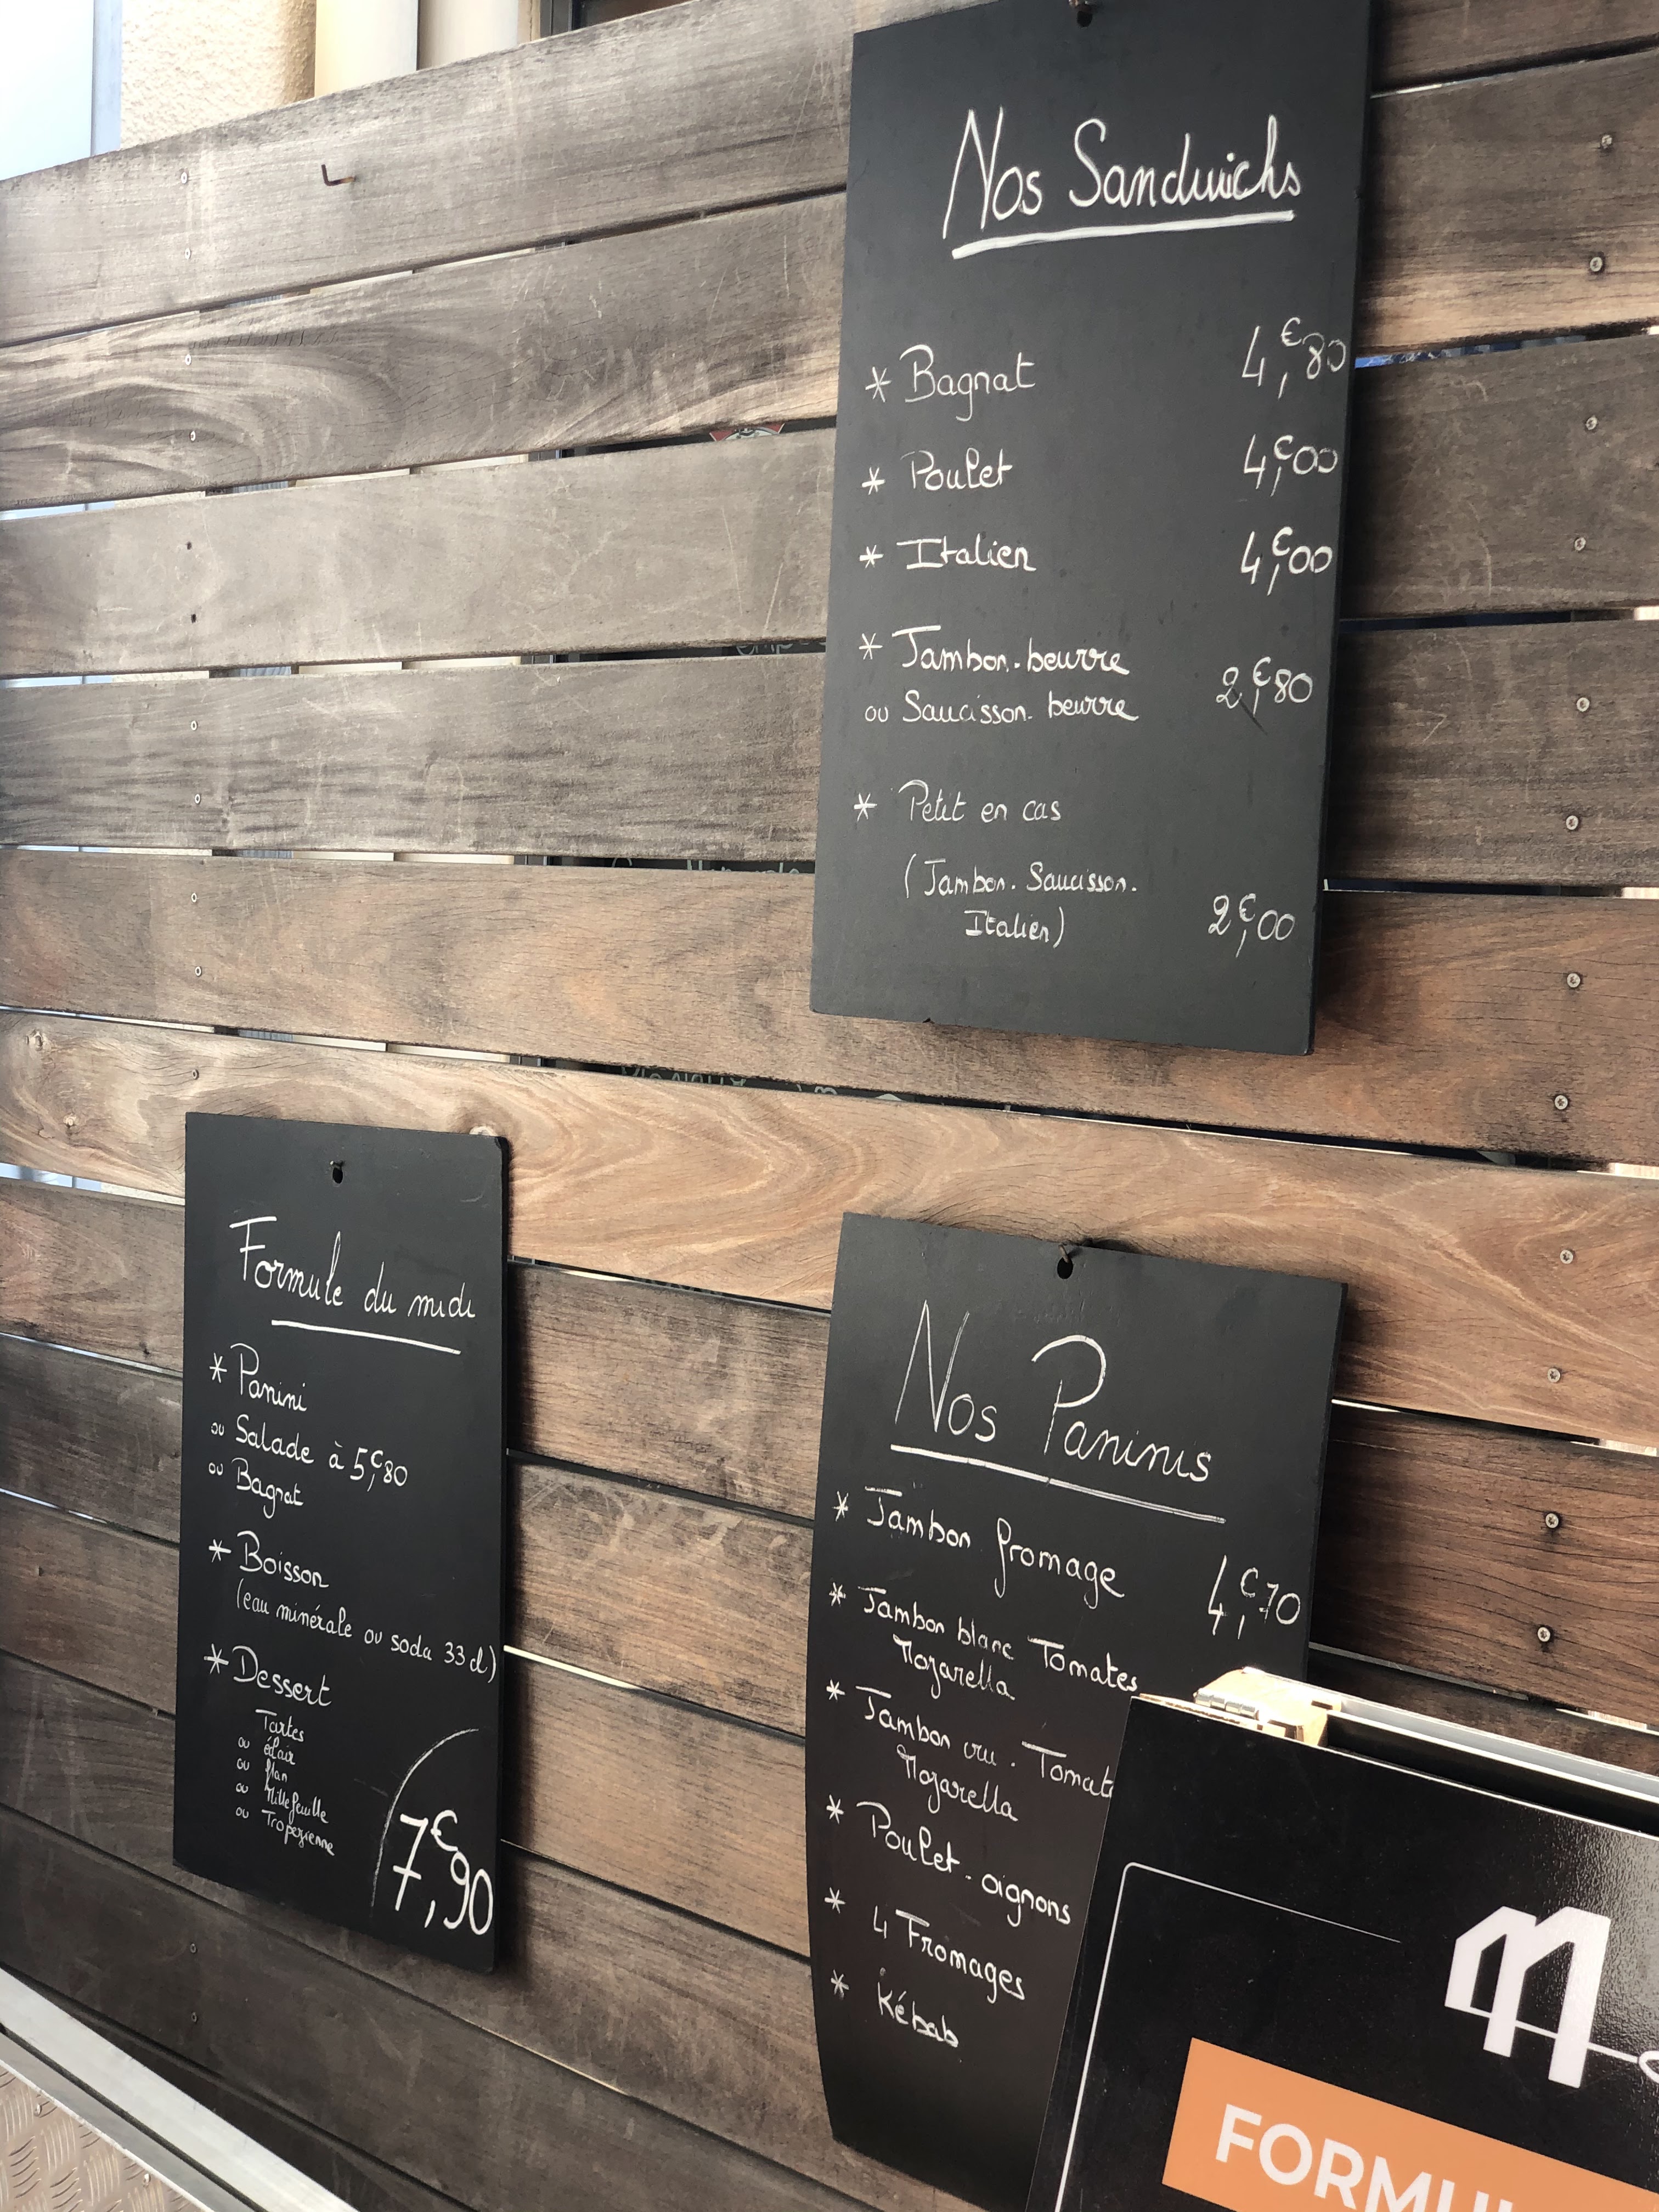 Nos Sandwichs
* Bagnat 4,€80
* Poulet 4,€00
* Italien 4,€00
* Jambon-beurre
ou Saucisson-beurre 2,€80
* Petit en cas
(Jambon. Saucisson.
Italien) 2,€00
Formule du midi
* Panini
ou Salade à 5,€80
ou Bagnat
* Boisson
(eau minérale ou soda 33cl)
* Dessert
Tartes
ou éclair
ou flan
ou Millefeuille
ou Tropezienne
7,€90
Nos Paninis
* Jambon fromage 4,€70
* Jambon blanc Tomates
Mozarella
* Jambon cru. Tomat
Mozarella
* Poulet-oignons
* 4 Fromages
* Kébab
FORMU